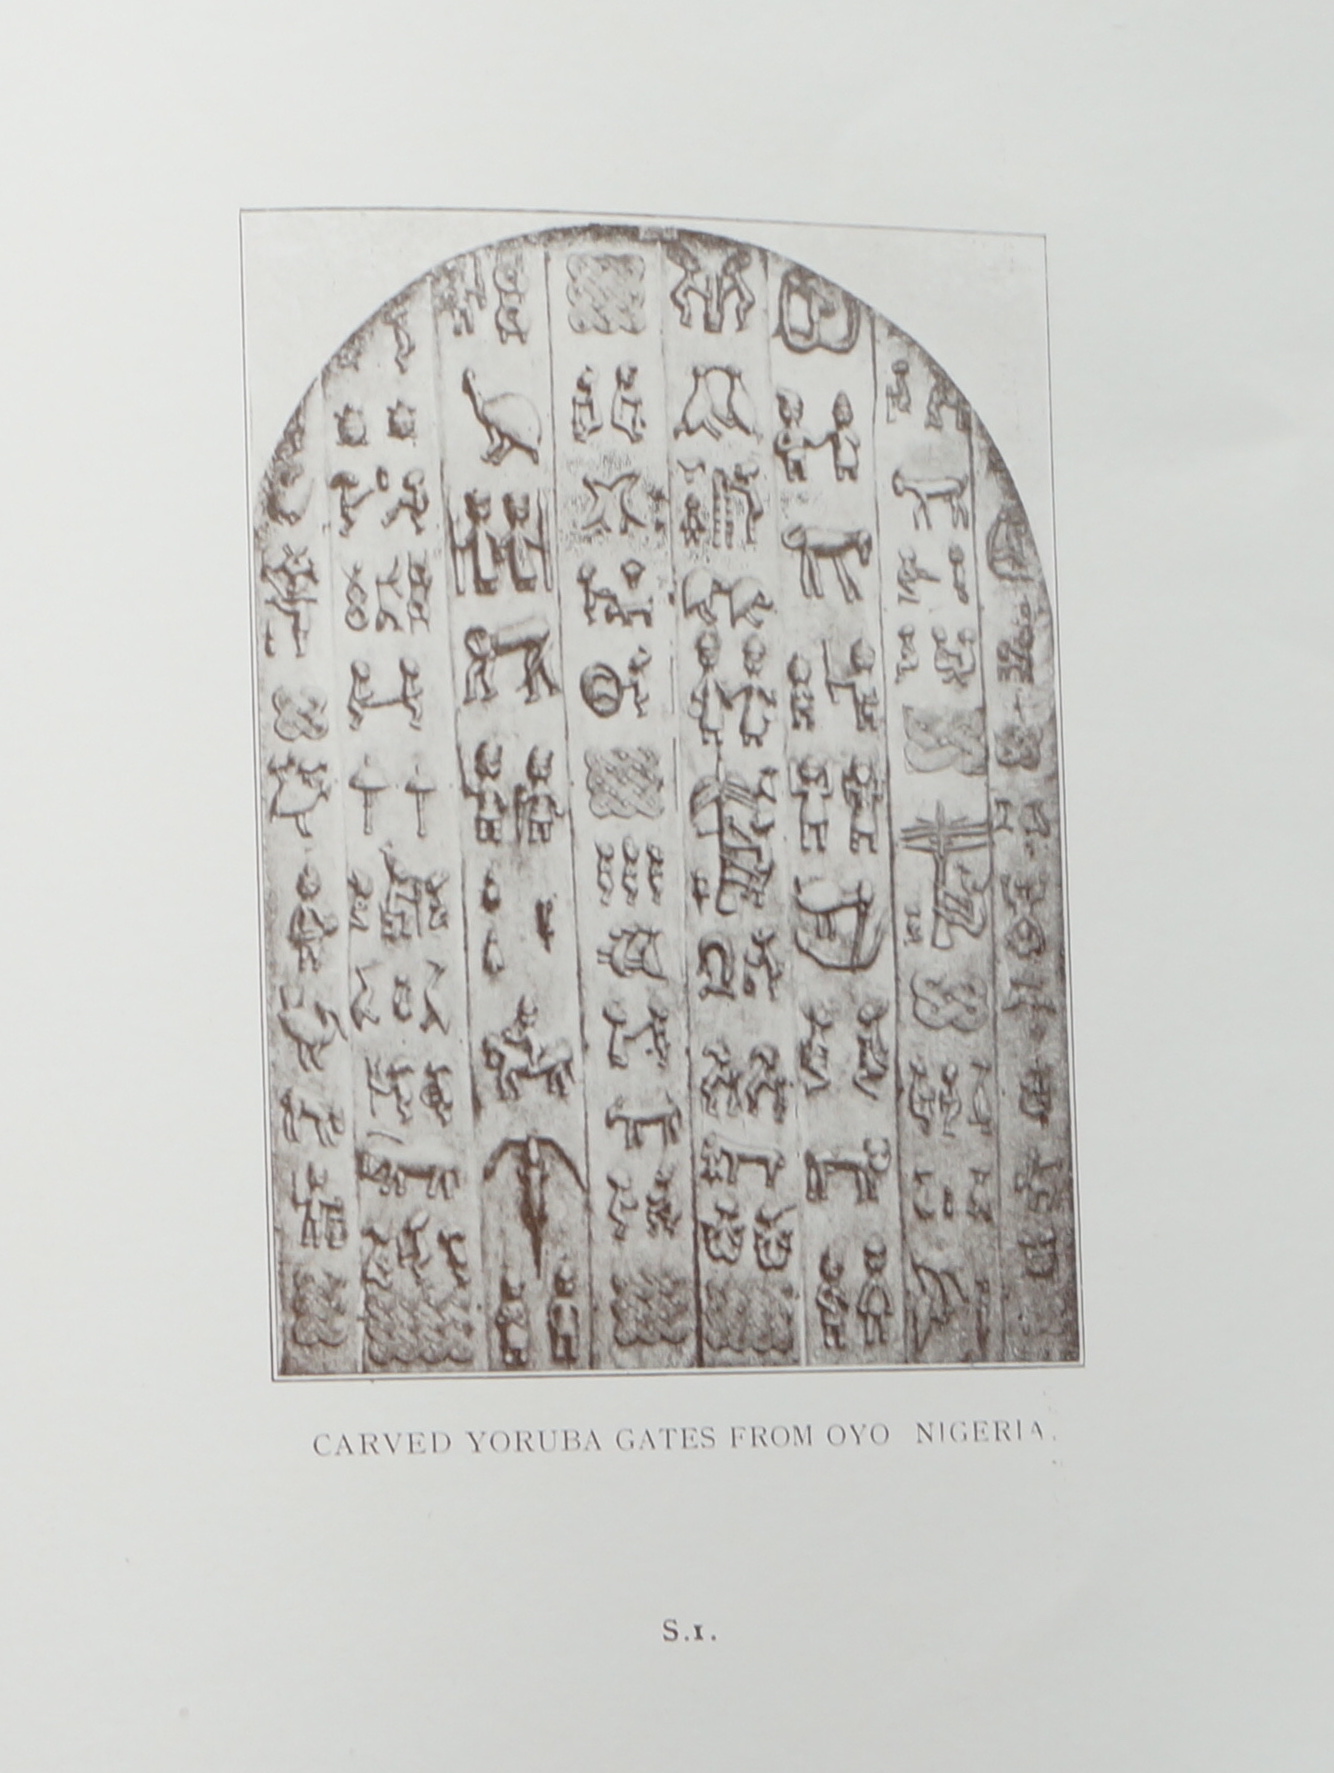 CARVED YORUBA GATES FROM OYO NIGERIA.
S.1.